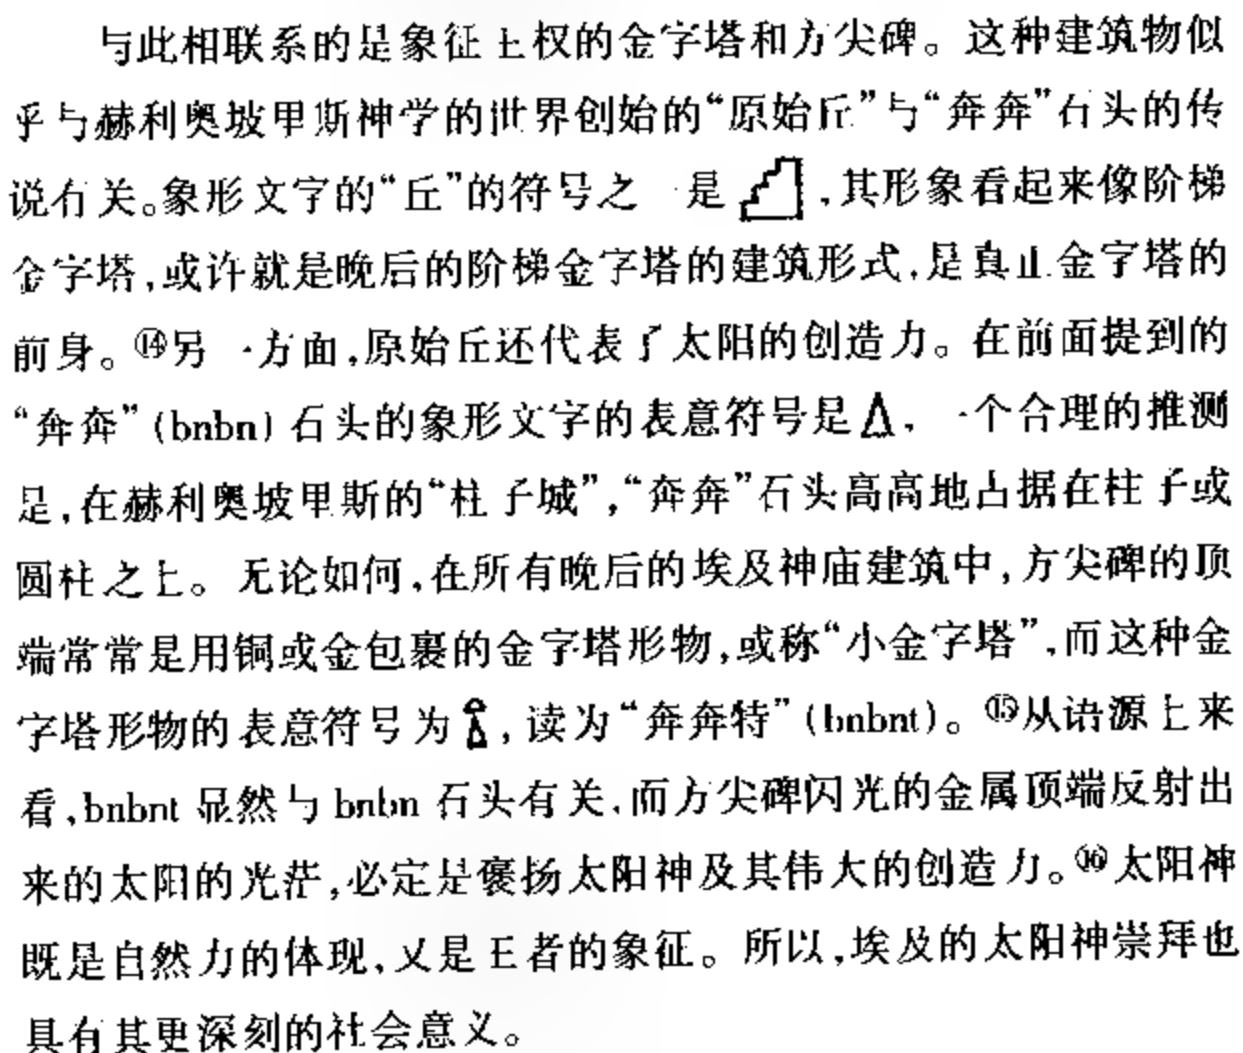 与此相联系的是象征王权的金字塔和方尖碑。这种建筑物似
乎与赫利奥坡里斯神学的世界创始的“原始丘”与“奔奔”石头的传
说有关。象形文字的“丘”的符号之一是,其形象看起来像阶梯
金字塔,或许就是晚后的阶梯金字塔的建筑形式,是真正金字塔的
前身。⑭另一方面,原始丘还代表了太阳的创造力。在前面提到的
“奔奔”(bnbn)石头的象形文字的表意符号是,一个合理的推测
是,在赫利奥坡里斯的“柱子城”,“奔奔”石头高高地占据在柱子或
圆柱之上。无论如何,在所有晚后的埃及神庙建筑中,方尖碑的顶
端常常是用铜或金包裹的金字塔形物,或称“小金字塔”,而这种金
字塔形物的表意符号为,读为“奔奔特”(bnbnt)。⑮从语源上来
看,bnbnt 显然与 bnbn 石头有关,而方尖碑闪光的金属顶端反射出
来的太阳的光茫,必定是褒扬太阳神及其伟大的创造力。⑯太阳神
既是自然力的体现,又是王者的象征。所以,埃及的太阳神崇拜也
具有其更深刻的社会意义。